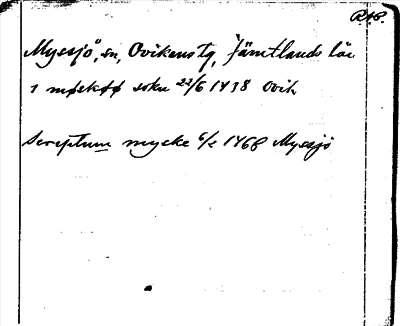 Myssjö, sn, Ovikens tg, Jämtlands län
i sokn 22/6 1438 Ovik
Scriptum mycke 6/2 1468 Myssjö